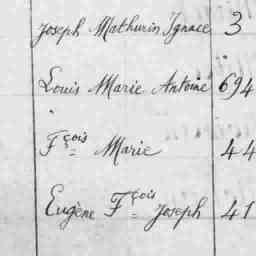 Joseph Mathurin Ignace 3
Louis Marie Antoine 694
Fçois Marie 44
Eugène Fçois Joseph 41